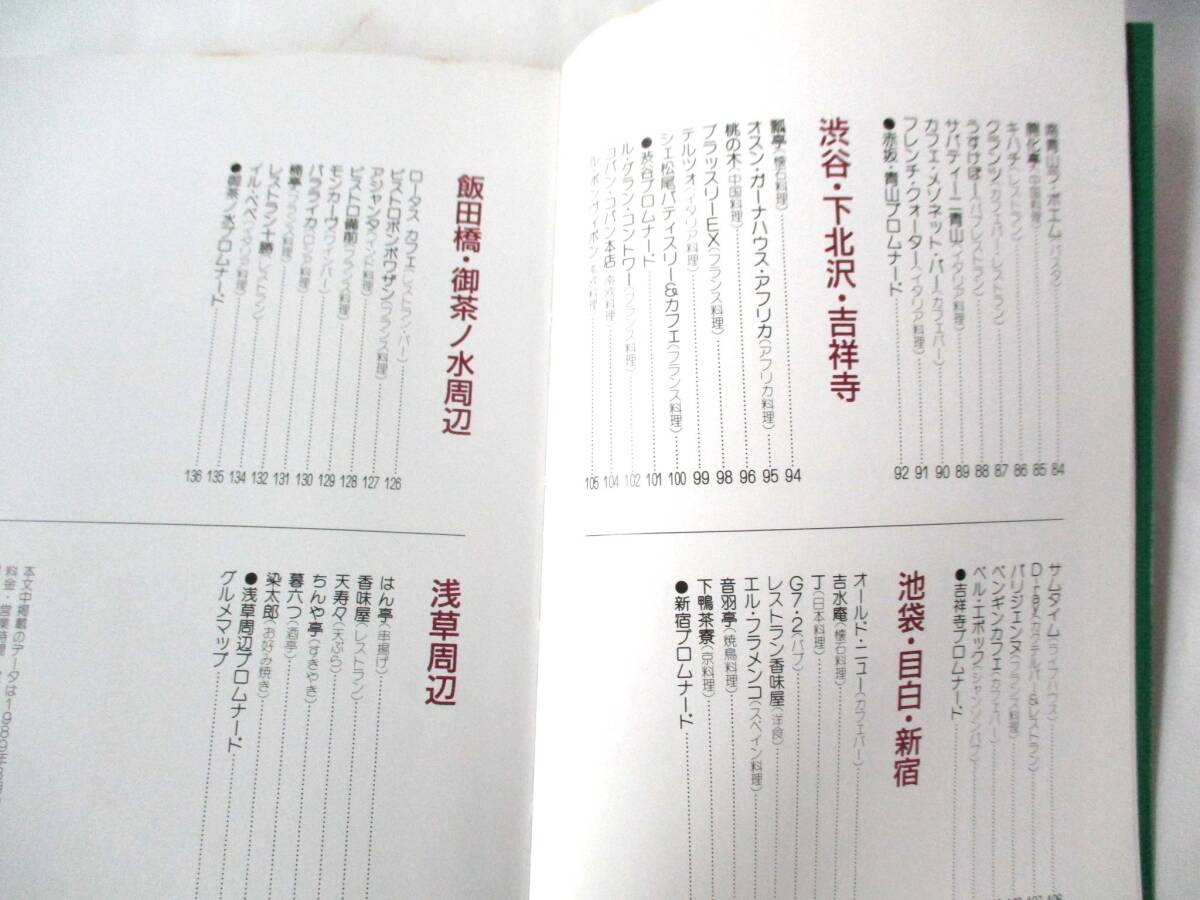 南青山ラ・ボエム(パスタ) 84
キハチ(レストラン) 86
クランツ(カフェバー・レストラン) 87
うすけぼー(パブレストラン) 88
サバティーニ青山(イタリア料理) 89
カフェ・メゾネット・バー(カフェバー) 90
フレンチ・クォーター(イタリア料理) 91
●赤坂・青山プロムナード 92
渋谷・下北沢・吉祥寺
瓢亭(懐石料理) 94
オスン・ガーナハウス・アフリカ(アフリカ料理) 95
桃の木(中国料理) 96
ブラッスリーEX(フランス料理) 98
テルツォ(イタリア料理) 99
シェ松尾パティスリー&カフェ(フランス料理) 100
●渋谷プロムナード 101
ル・グラン・コントワー(フランス料理) 102
コパン・コパン本店 104
105
サムタイム(ライブハウス)
D-ray(カクテルバー&レストラン)
パリジェンヌ(フランス料理)
ペンギンカフェ(カフェバー)
ベル・エポック(シャンソンパブ)
●吉祥寺プロムナード
池袋・目白・新宿
オールド・ニュー(カフェバー)
吉水庵(懐石料理)
丁(日本料理)
G7・2(パブ)
レストラン香味屋(洋食)
エル・フラメンコ(スペイン料理)
音羽亭(焼鳥料理)
下鴨茶寮(京料理)
●新宿プロムナード
飯田橋・御茶ノ水周辺
ロータス カフェ(レストラン・バー) 126
ビストロボンボワザン(フランス料理) 127
アジャンタ(インド料理) 128
ビストロ備前(フランス料理) 129
モンカーヴ(ワインバー) 130
バラライカ(ロシア料理) 131
楠亭(フランス料理) 132
レストラン十勝(レストラン) 134
イル・ペペ(イタリア料理) 135
●御茶ノ水プロムナード 136
浅草周辺
はん亭(串揚げ)
香味屋(レストラン)
天寿々(天ぷら)
ちんや亭(すきやき)
暮六つ(酒亭)
染太郎(お好み焼き)
●浅草周辺プロムナード
グルメマップ
本文中掲載のデータは1989年
料金・営業時間